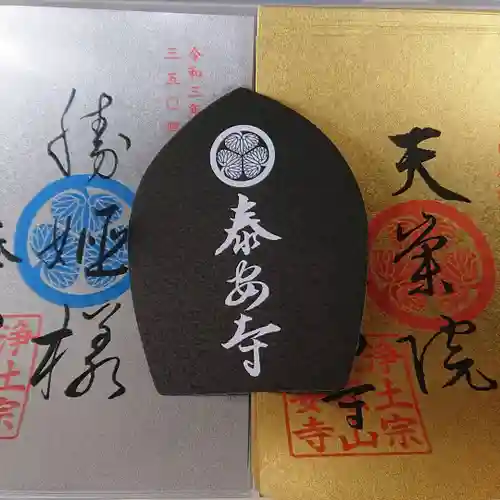 令和三年
三五〇
勝姫様
浄土宗
泰安寺
天栄院
浄土宗
山
安寺